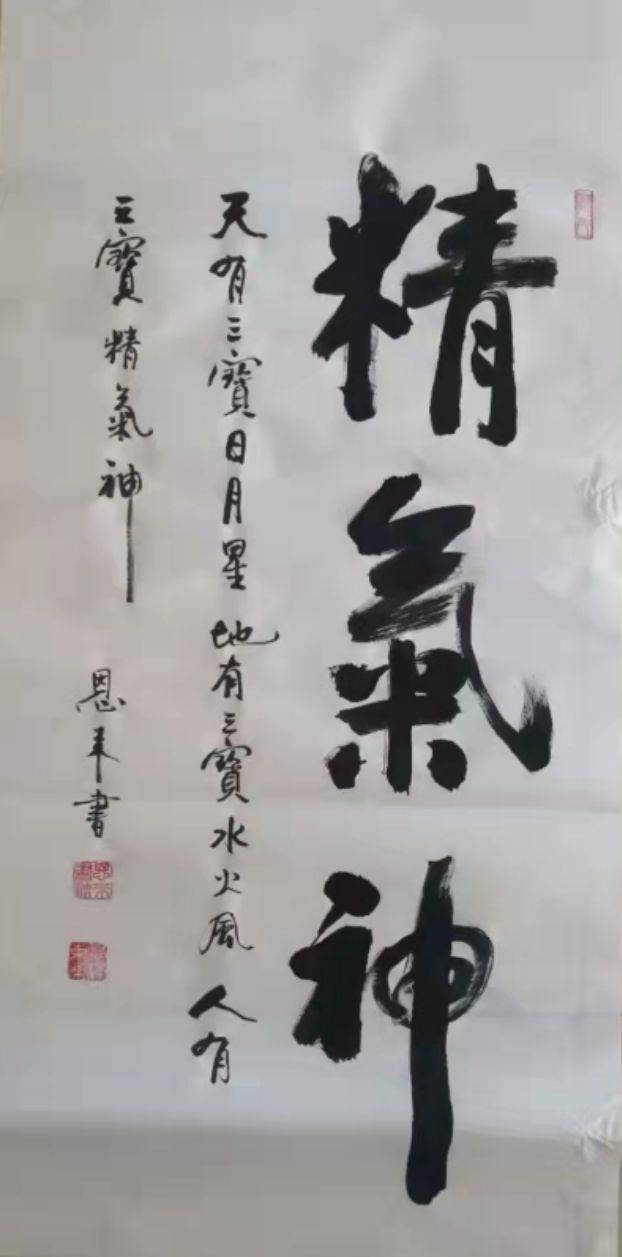 精氣神
天有三寶日月星地有三寶水火風人有
三寶精氣神
恩來書